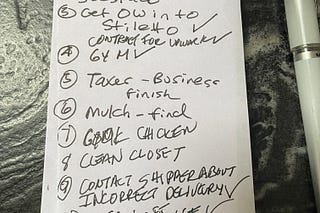 ③ Get OW in to
Stiletto ✓
CONTRACT FOR ✓
④ GYM ✓
⑤ Taxes - Business
Finish
⑥ Mulch - find
7 COOK CHICKEN
8 CLEAN CLOSET
⑨ CONTACT SHIPPER ABOUT
INCORRECT DELIVERY ✓